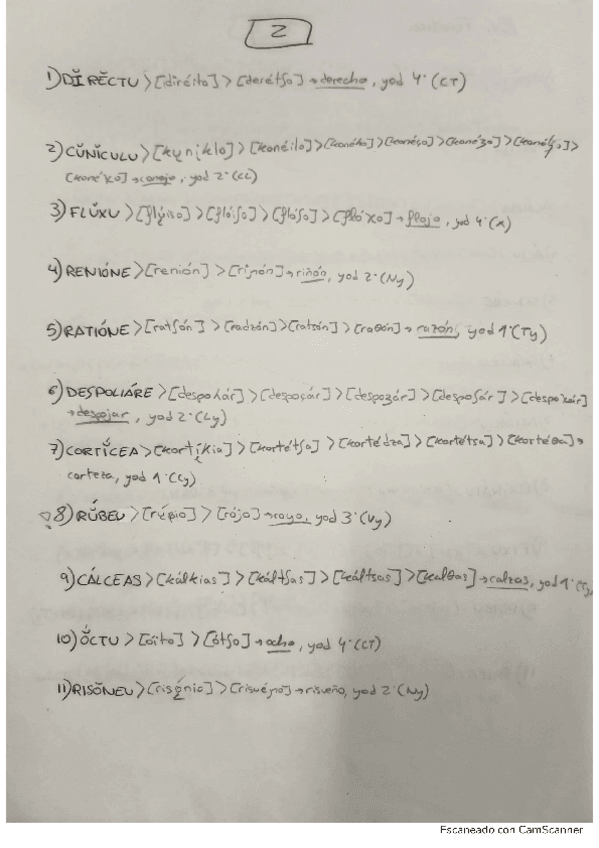 2
1) DĪRĒCTU > [diréito] > [derétʃo] → derecho, yod 4ª (CT)
2) CŬNĬCULU > [kuniklo] > [konéilo] > [konéʎo] > [konéʝo] > [konéʒo] > [konéʃo] >
[konéxo] → conejo, yod 2ª (CL)
3) FLŬXU > [flúiso] > [flóiʃo] > [flóʃo] > [flóxo] → flojo, yod 4ª (X)
4) RENIŌNE > [renión] > [riɲón] → riñón, yod 2ª (Ny)
5) RATIŌNE > [ratsón] > [radzón] > [ratsón] > [raθón] → razón, yod 1ª (Ty)
6) DESPOLIĀRE > [despoʎár] > [despoʝár] > [despoʒár] > [despoʃár] > [despoxár]
→ despojar, yod 2ª (Ly)
7) CORTĬCEA > [kortíkia] > [kortétsa] > [kortédza] > [kortétsa] > [kortéθa] →
corteza, yod 1ª (Cy)
¿8) RŬBEU > [rúbio] > [róʝo] → royo, yod 3ª (Vy)
9) CÁLCEAS > [kálkias] > [káltsas] > [káltsas] > [kálθas] → calzas, yod 1ª
10) ŎCTU > [óito] > [ótʃo] → ocho, yod 4ª (CT)
11) RISŎNEU > [risónio] > [risuéɲo] → risueño, yod 2ª (Ny)
Escaneado con CamScanner